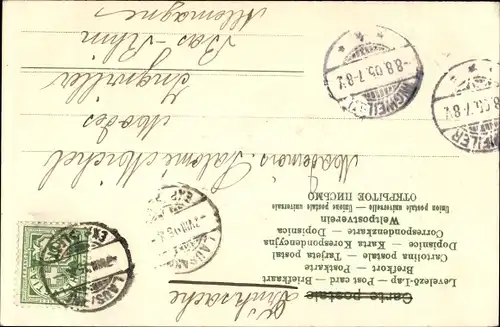 Carte postale
Levelező-Lap — Post card — Briefkaart
Brefkort — Postkarte
Cartolina postale — Tarjeta postal
Dopisnice — Karta Korespondencyjna
Correspondenzkarte — Dopisnica
Weltpostverein
Union postale universelle — Unione postale universale
ОТКРЫТОЕ ПИСЬМО
Drucksache
Mademois. Salomé
Modes
Ingwiller
Bas-Rhin
Allemagne
INGWEILER
8.8.05.7-8V
LAUSANNE